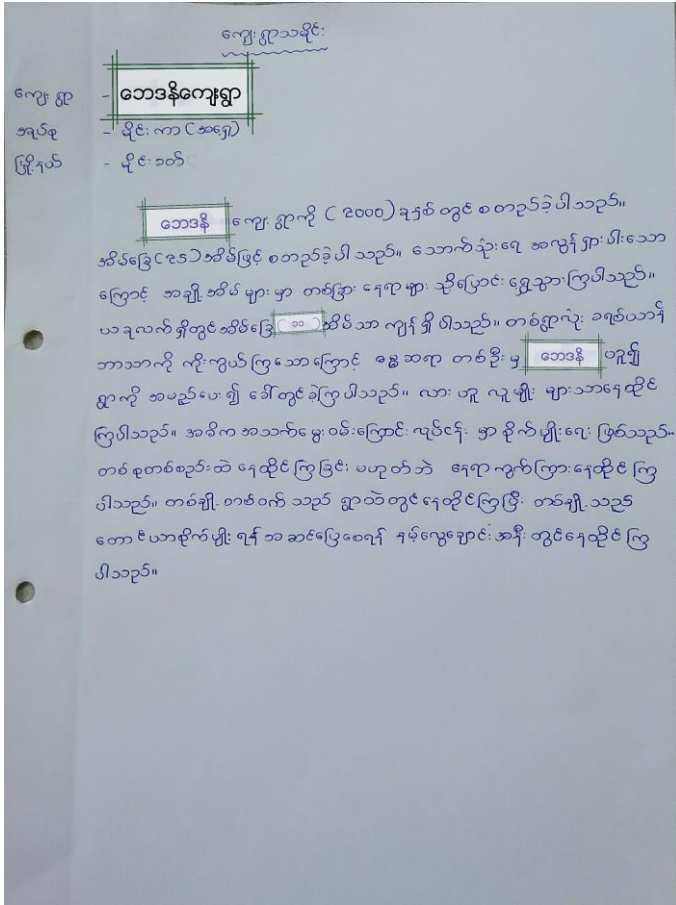 ကျေးရွာသမိုင်း
ကျေးရွာ - ဘေဒနိကျေးရွာ
အုပ်စု - မိုင်းကာ (အရှေ့)
မြို့နယ် - မိုင်းခတ်
ဘေဒနိ ကျေးရွာကို (2000) ခုနှစ်တွင် စတည်ခဲ့ပါသည်။
အိမ်ခြေ (25) အိမ်ဖြင့် စတည်ခဲ့ပါသည်။ သောက်သုံးရေ အလွန်ရှားပါးသော
ကြောင့် အချို့အိမ်များမှာ တစ်ခြားနေရာများ သို့ပြောင်းရွှေ့သွားကြပါသည်။
ယခုလက်ရှိတွင်အိမ်ခြေ (၁၁) အိမ်သာ ကျန်ရှိပါသည်။ တစ်ရွာလုံး ခရစ်ယာန်
ဘာသာကို ကိုးကွယ်ကြသောကြောင့် ဓမ္မဆရာ တစ်ဦးမှ ဘေဒနိ ဟူ၍
ရွာကို အမည်ပေး၍ ခေါ်တွင်ခဲ့ကြပါသည်။ လားဟူ လူမျိုးများသာနေထိုင်
ကြပါသည်။ အဓိက အသက်မွေးဝမ်းကြောင်းလုပ်ငန်းမှာ စိုက်ပျိုးရေးဖြစ်သည်။
တစ်စုတစ်စည်းထဲ နေထိုင်ကြခြင်း မဟုတ်ဘဲ နေရာကွက်ကြားနေထိုင်ကြ
ပါသည်။ တစ်ချို့တစ်ဝက်သည် ရွာထဲတွင်နေထိုင်ကြပြီး တစ်ချို့သည်
တောင်ယာစိုက်ပျိုးရန် အဆင်ပြေစေရန် နမ့်လွေချောင်းအနီးတွင်နေထိုင်ကြ
ပါသည်။